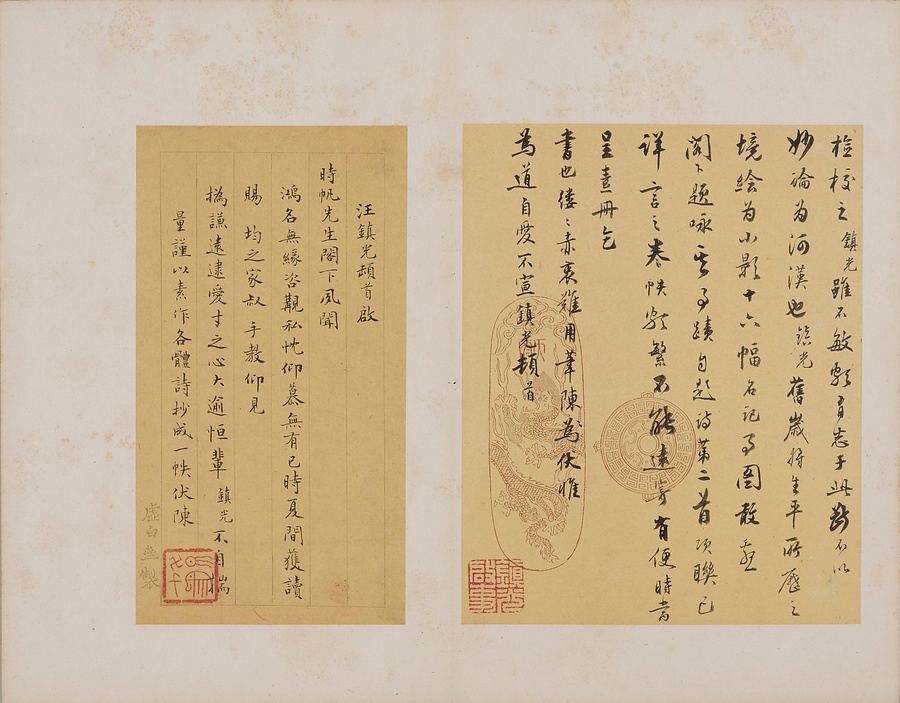 檢校之鎮光雖不敏頗有志于此斷不以
妙論為河漢也鎮光舊歲將生平所歷之
境繪為小影十六幅名記事圖敢乞
閣下題咏其事蹟自題詩第二首項聯已
詳言之卷帙頗繁不能遠寄有便時當
呈畫冊乞
書也僂僂赤衷難用筆陳為伏惟
為道自愛不宣鎮光頓首
汪鎮光頓首啟
時帆先生閣下夙聞
鴻名無緣咨覯私忱仰慕無有已時夏間獲讀
賜均之家叔手教仰見
撝謙遠逮愛才之心大逾恒輩鎮光不自揣
量謹以素作各體詩抄成一帙伏陳
虛白齋製